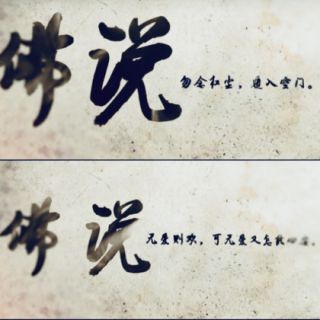 佛说 勿念红尘，遁入空门。
佛说 无爱则欢，可无爱又怎能